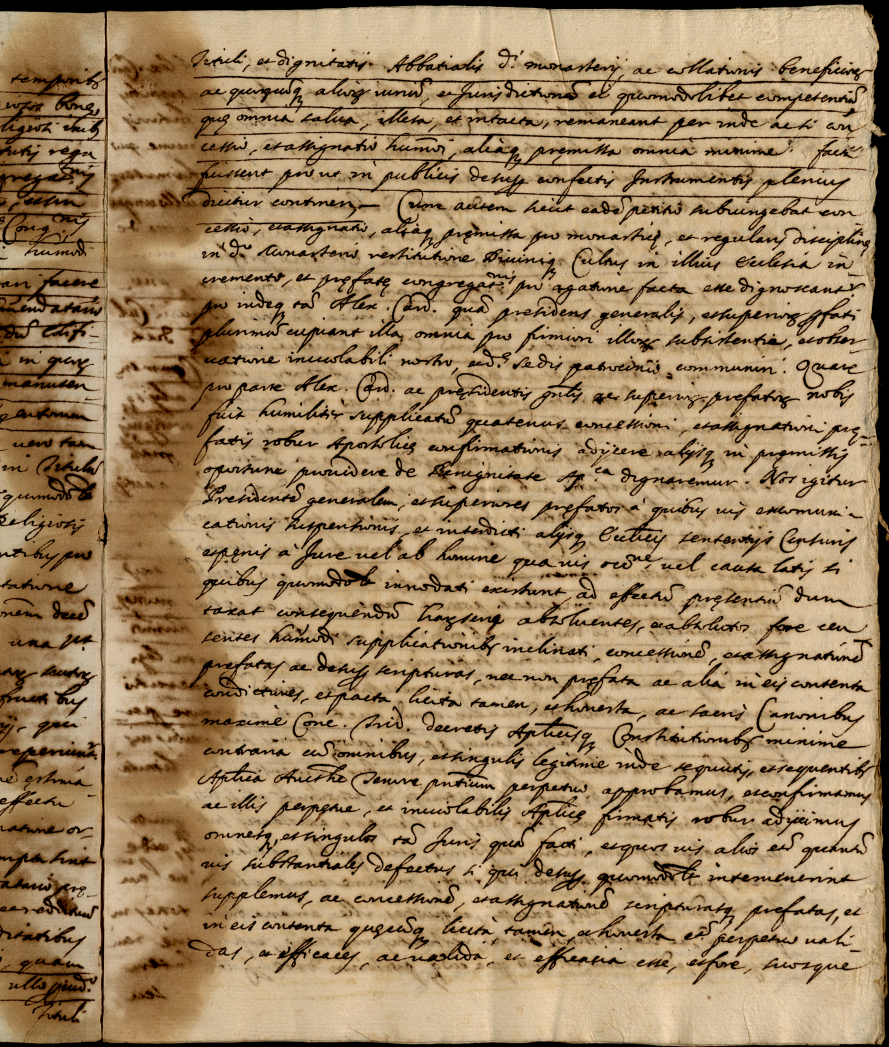 temporib9
ligiosi
rega
Cong.nis
humōi
facere
in quaȝ
manuten
gentorum
uero tam
in Tituli
quomōlt
Religiosis
ntibus pro
tatione
onem decē
una pt
fructibus
qui
reperiunt
effectu
natione or-
mpta sint
ditatibus
, quam
ullo
Tituli
Tituli, et dignitatis Abbatialis d.i monasterij, ac collationis beneficioȝ
ac quorūcūq3 alioȝ iuriū, et Jurisdictionū ei quomodolibet competentiū
quę omnia salua, illesa, et intacta, remaneant per inde ac si con
cessio, et assignatio humōi, aliaq3 pręmissa omnia minime facta
fuissent prout in publicis desup confectis Instrumentis plenius
dicitur contineri – Cum autem sicut eadē petitio subiungebat con
cessio, et assignatio, aliaq3 pręmissa pro monasticę, et regularis disciplinę
in d.o Monasterio restitutione Diuiniq3 Cultus in illius Ecclesia in
cremento, et pręfatę congregat.nis pro agatione facta esse dignoscant.r
pro indeq3 tā Alex. Card. quā presidens generalis, et superioȝ pfati
plurimū cupiant illa omnia pro firmiori illoȝ subsistentia, et obser-
uatione inuiolabili nostro, et d.ę Sedis patrocinio communiri. Quare
pro parte Alex. Card. ac pręsidentis gnlis ac superioȝ prefatoȝ nobis
fuit humiliter supplicatū quatenus concessioni, et assignationi prę-
fatis robur Apostolicę confirmationis adijcere alijsq3 in pręmissis
oportune prouidere de Benignitate Ap.ca dignaremur. Nos igitur
Presidentē generalem, et superiores prefatos à quibus uis excomuni-
cationis suspentionis, et interdicti alijsq3 Ecclicis sententijs Censuris
et pęnis à Jure uel ab homine qua uis occ.ne, uel causa latis si
quibus quomodolt innodati existunt, ad effectū pręsentiū dum
taxat consequendū haȝ serie absoluentes, et absolutos fore cen
sentes humōi supplicationib9 inclinati, concessionē, et assignationē
prefatas ac desup scripturas, nec non pręfata ac alia in eis contenta
conditiones, et pacta, licita tamen, et honesta, ac sacris Canonibus
maximè Conc. Trid. decretis Aplicisq3 Constitutionib9 minime
contraria cū omnibus, et singulis legitime inde sequutis, et sequentib9
Aplica Aucthe Tenore pntium perpetuo approbamus, et confirmamus
ac illis perpetuę, et inuiolabilis Aplicę firmatis robur adijcimus
omnesq3, et singulos tā Juris quā facti, et quos uis alios etā quantū
uis substantiales defectus si qui desup quomodolt interuenerint
supplemus, ac concessionē, et assignationē scripturasq3 prefatas, et
in eis contenta quęcūq3 licita tamen, et honesta etā perpetuo uali-
das, et efficaces, ac ualida, et efficacia esse, et fore, suosque